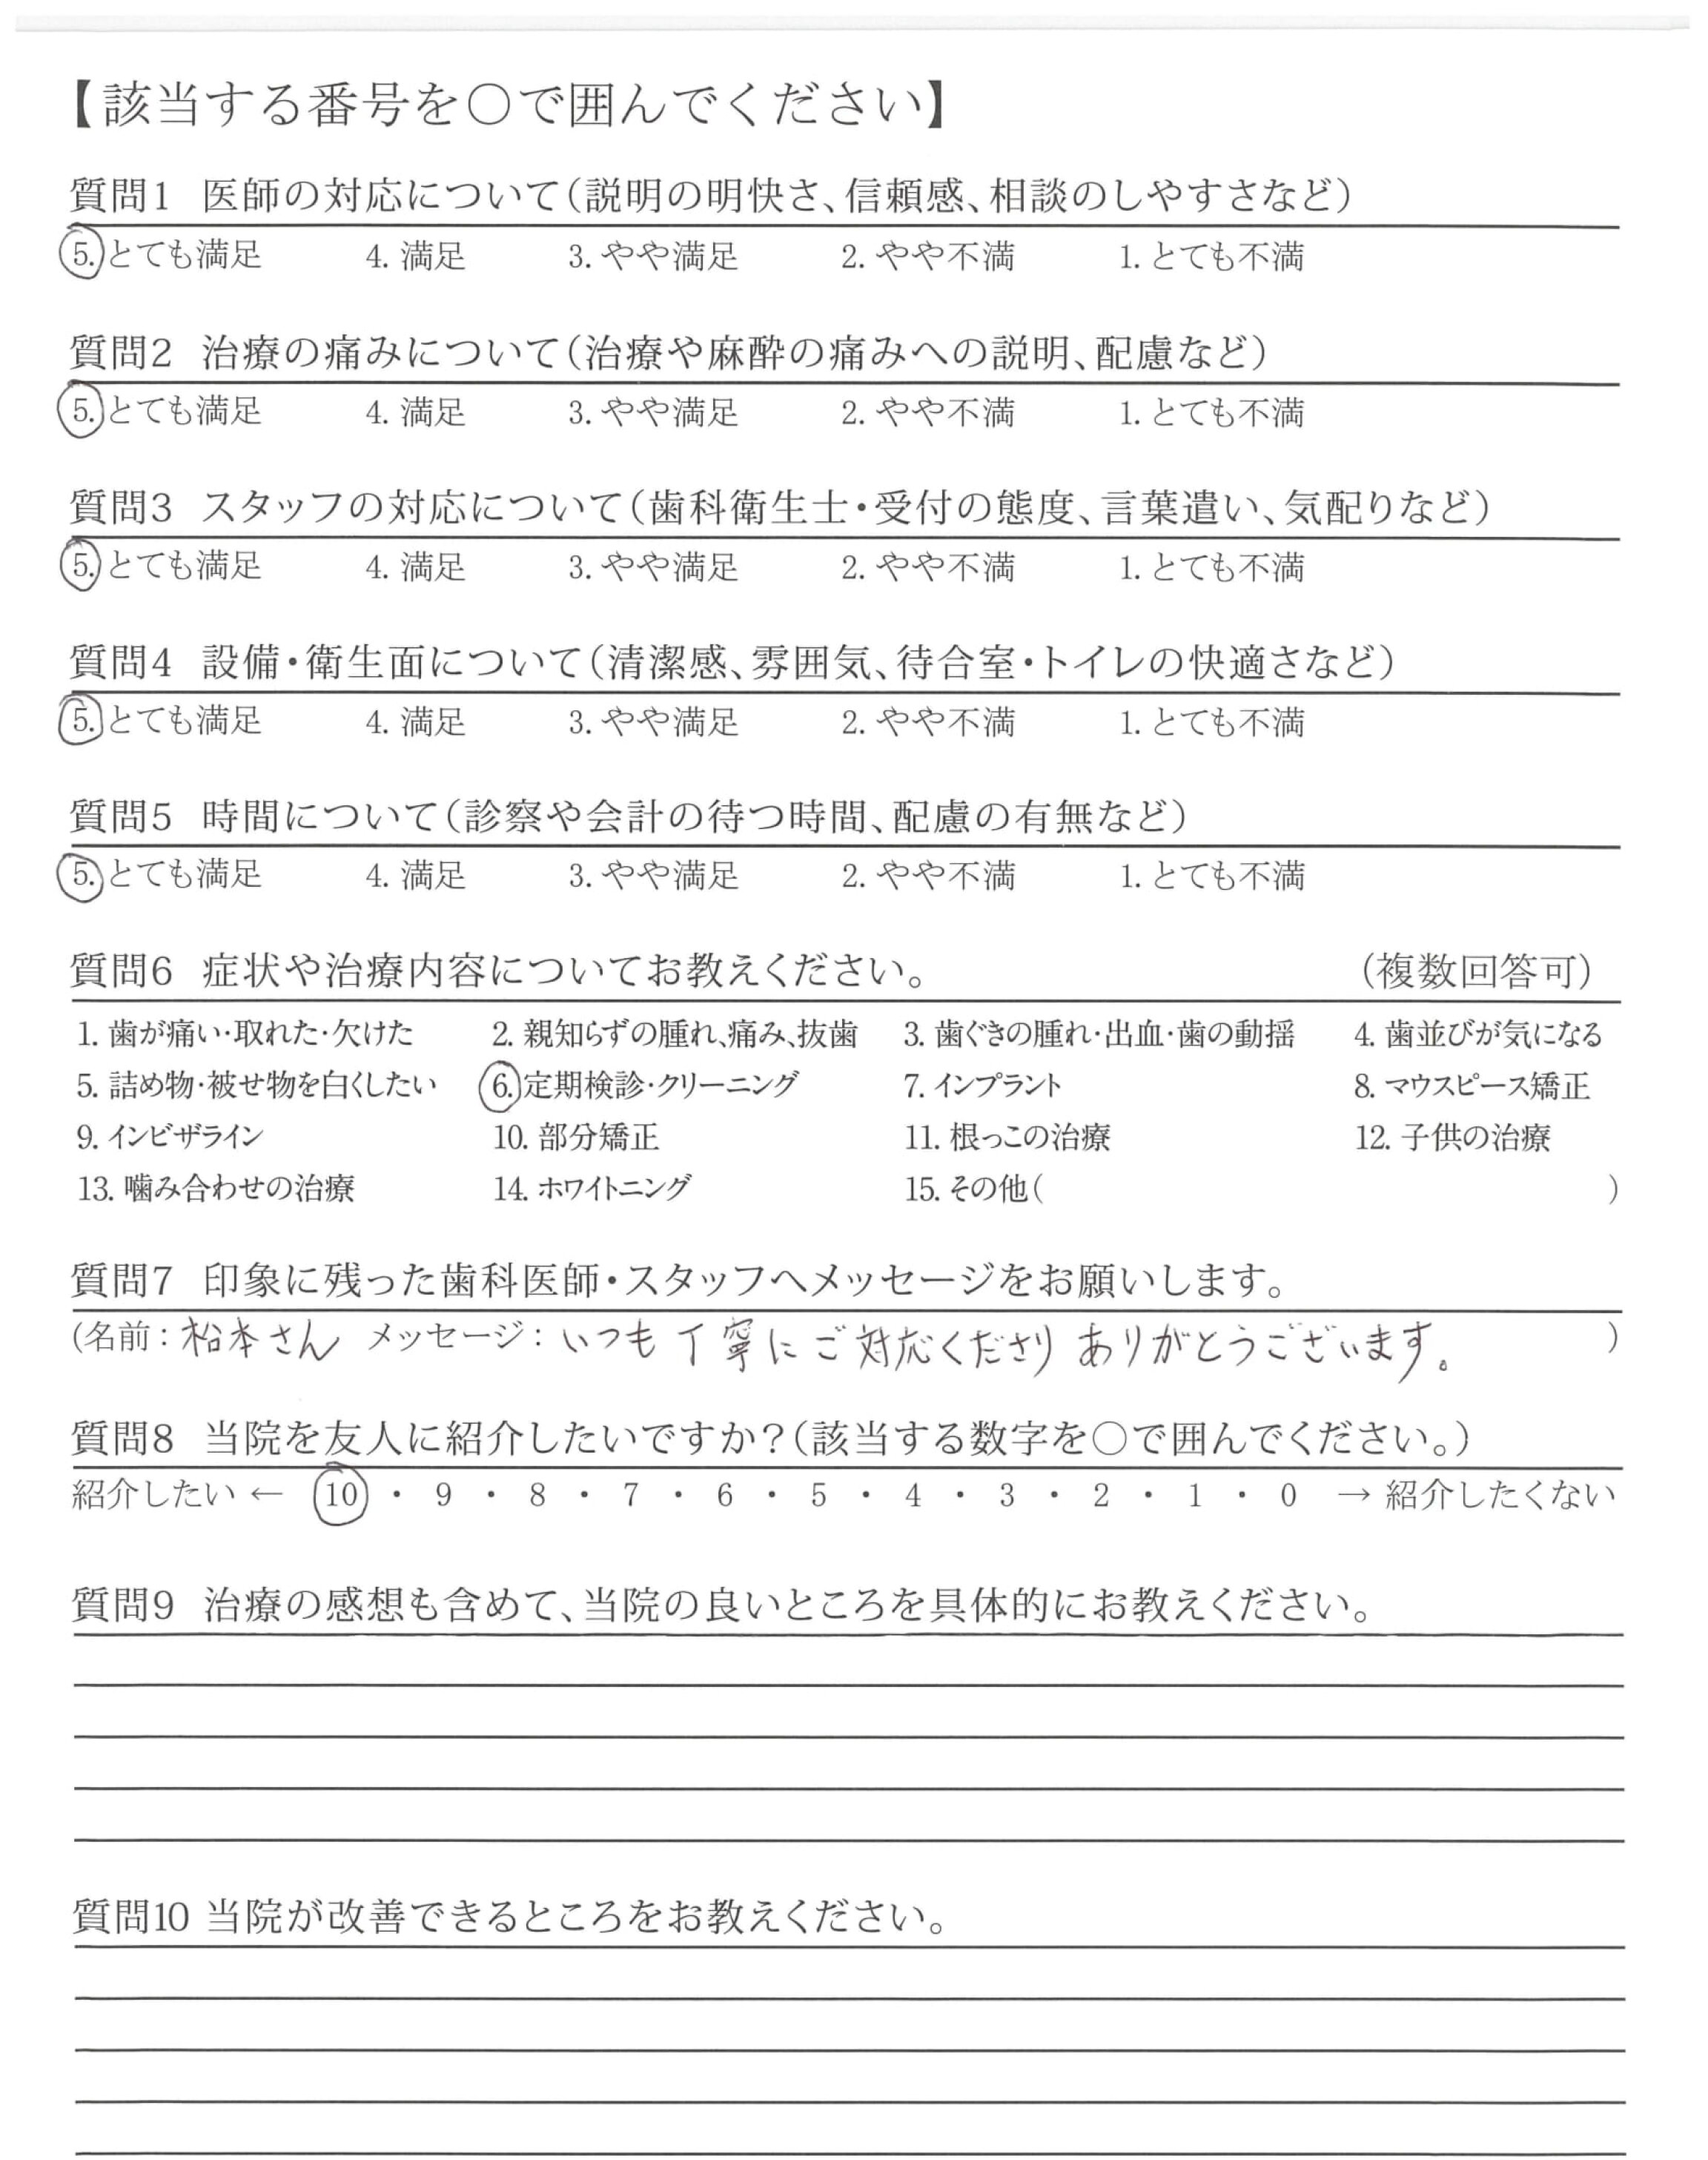 【該当する番号を○で囲んでください】
質問1 医師の対応について(説明の明快さ、信頼感、相談のしやすさなど)
5. とても満足 4. 満足 3. やや満足 2. やや不満 1. とても不満
質問2 治療の痛みについて(治療や麻酔の痛みへの説明、配慮など)
5. とても満足 4. 満足 3. やや満足 2. やや不満 1. とても不満
質問3 スタッフの対応について(歯科衛生士・受付の態度、言葉遣い、気配りなど)
5. とても満足 4. 満足 3. やや満足 2. やや不満 1. とても不満
質問4 設備・衛生面について(清潔感、雰囲気、待合室・トイレの快適さなど)
5. とても満足 4. 満足 3. やや満足 2. やや不満 1. とても不満
質問5 時間について(診察や会計の待つ時間、配慮の有無など)
5. とても満足 4. 満足 3. やや満足 2. やや不満 1. とても不満
質問6 症状や治療内容についてお教えください。 (複数回答可)
1. 歯が痛い・取れた・欠けた 2. 親知らずの腫れ、痛み、抜歯 3. 歯ぐきの腫れ・出血・歯の動揺 4. 歯並びが気になる
5. 詰め物・被せ物を白くしたい 6. 定期検診・クリーニング 7. インプラント 8. マウスピース矯正
9. インビザライン 10. 部分矯正 11. 根っこの治療 12. 子供の治療
13. 噛み合わせの治療 14. ホワイトニング 15. その他( )
質問7 印象に残った歯科医師・スタッフへメッセージをお願いします。
(名前:松本さん メッセージ:いつも丁寧にご対応くださりありがとうございます。 )
質問8 当院を友人に紹介したいですか?(該当する数字を○で囲んでください。)
紹介したい ← 10 ・ 9 ・ 8 ・ 7 ・ 6 ・ 5 ・ 4 ・ 3 ・ 2 ・ 1 ・ 0 → 紹介したくない
質問9 治療の感想も含めて、当院の良いところを具体的にお教えください。
質問10 当院が改善できるところをお教えください。